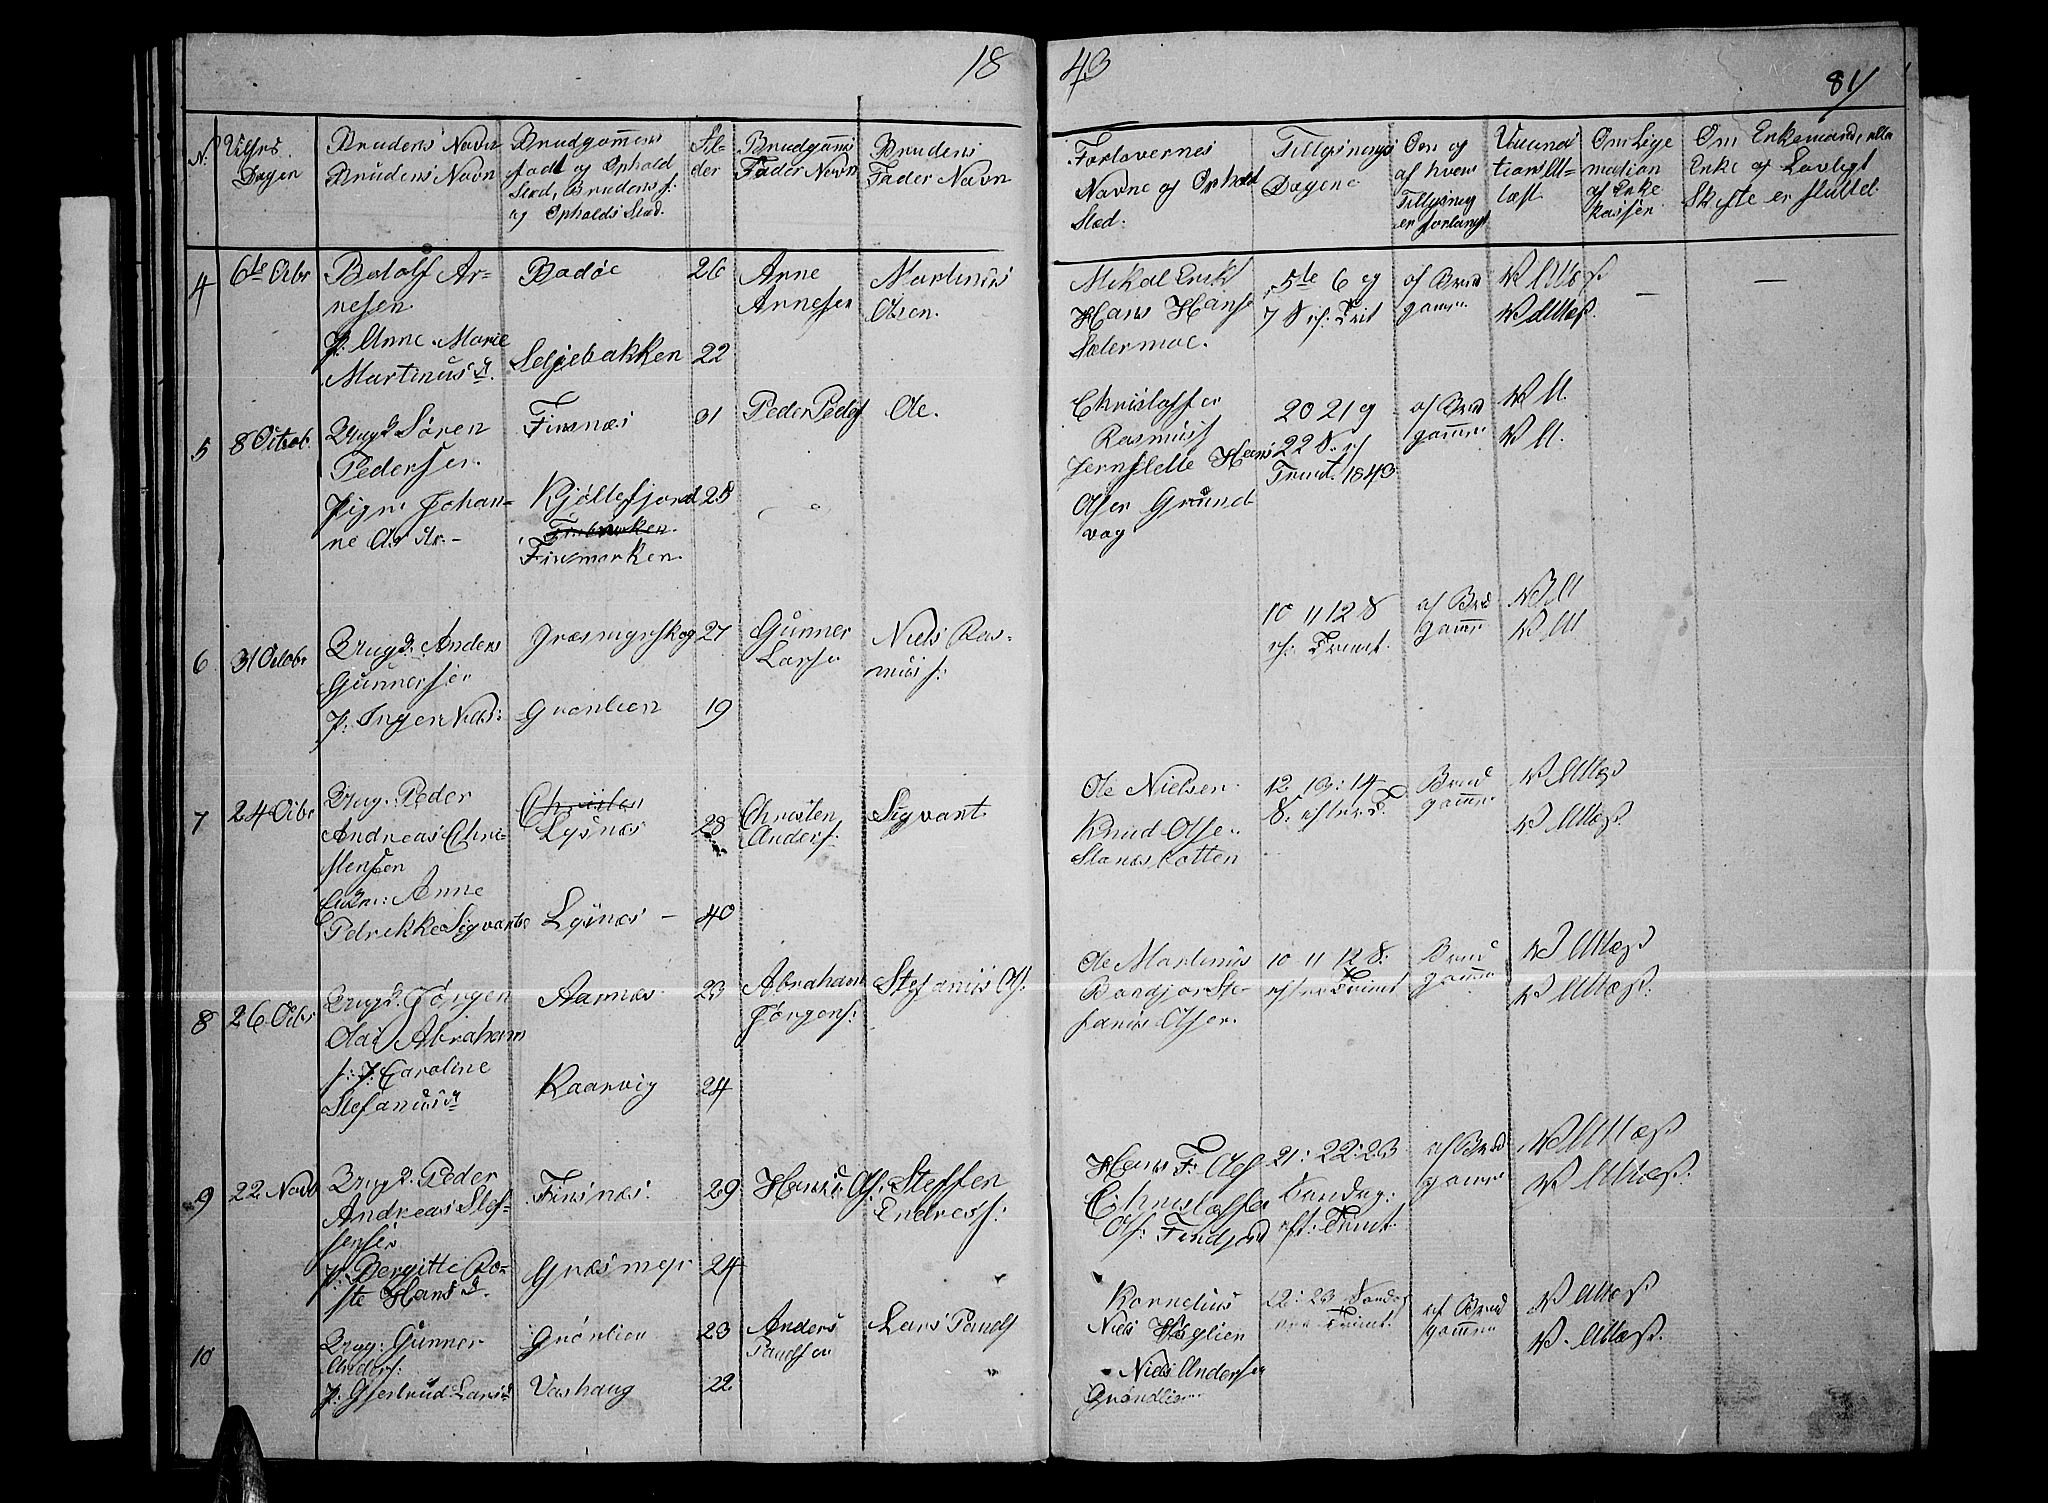 18 43
81/
N.
Vielses
Dagen
Brudens Navn
Brudens Navn
Brudgomens
fadt og Ophold
Sted, Brudens f:
og Opholds Sted.
Al-
der
Brudgoms
Fader Navn
Brudens
Fader Navn
Forlovernes
Navne og Ophold
Sted.
Tillysnings
Dagene
Om og
af hvem
Tillysning
er forlangt
Om Enkemand, eller
Enke og Lovligt
Skifte er sluttet.
4
6te Octbr
Bodolf Ar-
nesen
p: Anne Marie
Martinusd.
Badøe
Seljebakken
26
22
Arne
Arnesen
Martinus
Olsen.
Mikal Erikf
Hans Hansf
Sætermoe.
5te 6 og
7 S ef: Trit
af Brud
gomen
V. Attest.
V. Attest.
— —
5
8 Octob.
Ungk Søren
Pedersen.
Pigen Johan-
ne Os Dr.-
Finsnæs
Kjøllefjord
Finmarken.
31
28
Peder Pedf
Ole.
Christoffer
Rasmusf
Hans
Olsen Grund
vag
20 21 og
22 S. ef
Trint. 1843
af Brud
gomen
V A.
V A.
6
31 Octobr
Ungk. Anders
Gunnersen
p: Inger Niels:
Græsmyrskog
Grønlien
27
19
Gunner
Larsen
Niels Ras-
musf:
10 11 12 S
ef: Trint.
af Brud
gomen
V. A
V A
7
24 Octbr
Ung. Peder
Andreas Chri-
stensen
Enken: Anne
Petrikke Sigvarts
Christen
Lysnæs
Lysnæs —
28
40
Christen
Andersf:
Sigvart
Ole Nielsen
Knud Olsen
12 13: 14
S. efter T.
Brud
gomen
V Attest
V Attest.
8
26 Octbr
Ungk. Jørgen
Olai Abraham
f: p: Caroline
Stefanusd.
Aarnæs
Kaarvig
23
24
Abraham
Jørgensf:
Stefanus Olf:
Ole Martinus
Bondjord Ste-
fanus Olsen.
10 11 12 S:
efter Trint
Brud
gomen
V Attest
V Attest.
9
22 Novb
Ungk. Peder
Andreas Stef-
fensen
p: Bergitte Be-
ste Hansd.
Finsnæs.
Græsmyr
29
24
Hans Olf:
Steffen
Endresf:
Hans F. Olsf
Christoffer
Olf: Finfjord
21: 22: 23
Søndag:
eft: Trint.
af Brud
gomen
V Attest
V Attest.
10
Ung: Gunner
Andersf:
p: Gjertrud Larsd
Grønlien
Vashaug
23
22
Anders
Paulsen
Lars Paulsf
Kornelius
Niels Haglien
Niels Andersen
Grøndlien
22: 23 Søndag
Trint.
af Brud
gomen
V Attest
V. Attest.